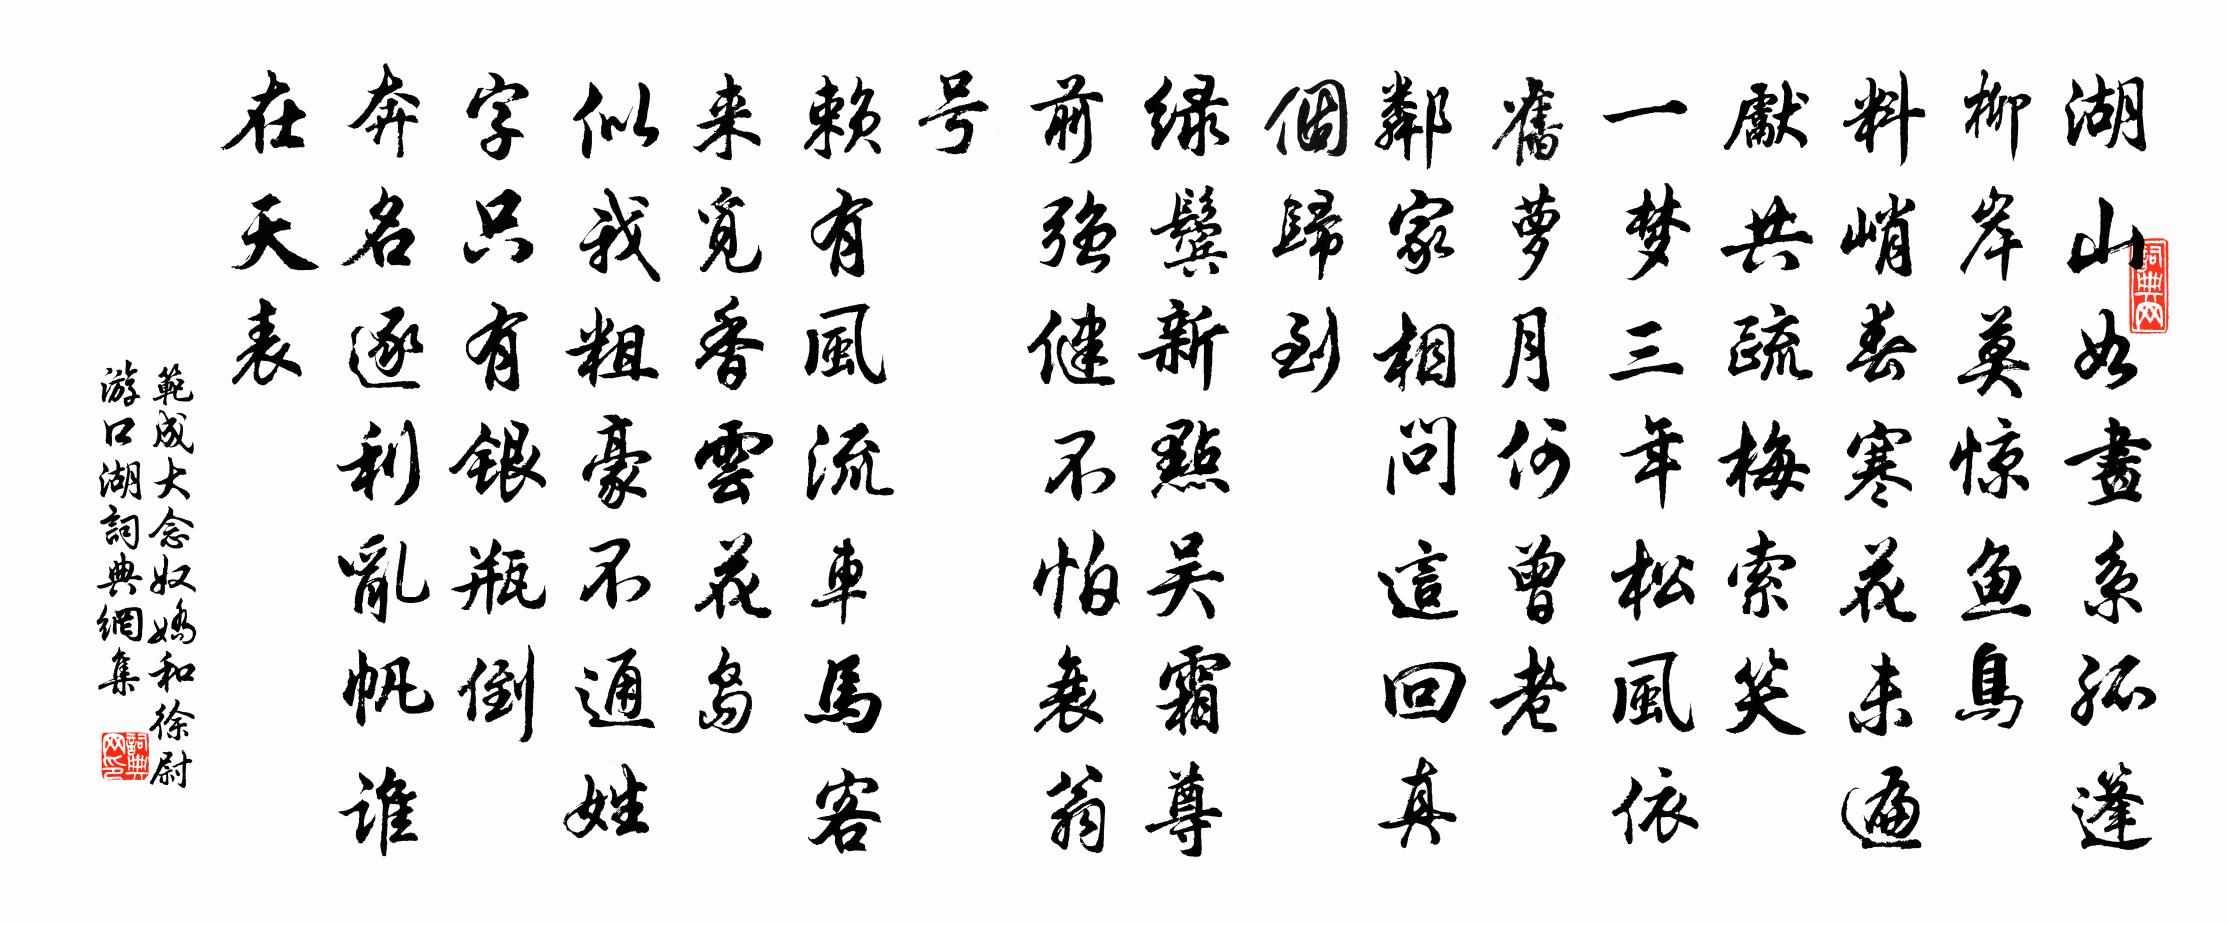 湖山如畫系孤篷
柳岸莫惊鱼鳥
料峭春寒花未遍
獻共疏梅索笑
一梦三年松風依
舊萝月何曾老
鄰家相问這回真
個歸到
绿鬓新點吴霜尊
前强健不怕衰翁
号
赖有風流車馬客
来觅香雲花岛
似我粗豪不通姓
字只有銀瓶倒
奔名逐利亂帆谁
在天表
範成大念奴嬌和徐尉
游口湖詞典網集
词典网
詞典网印